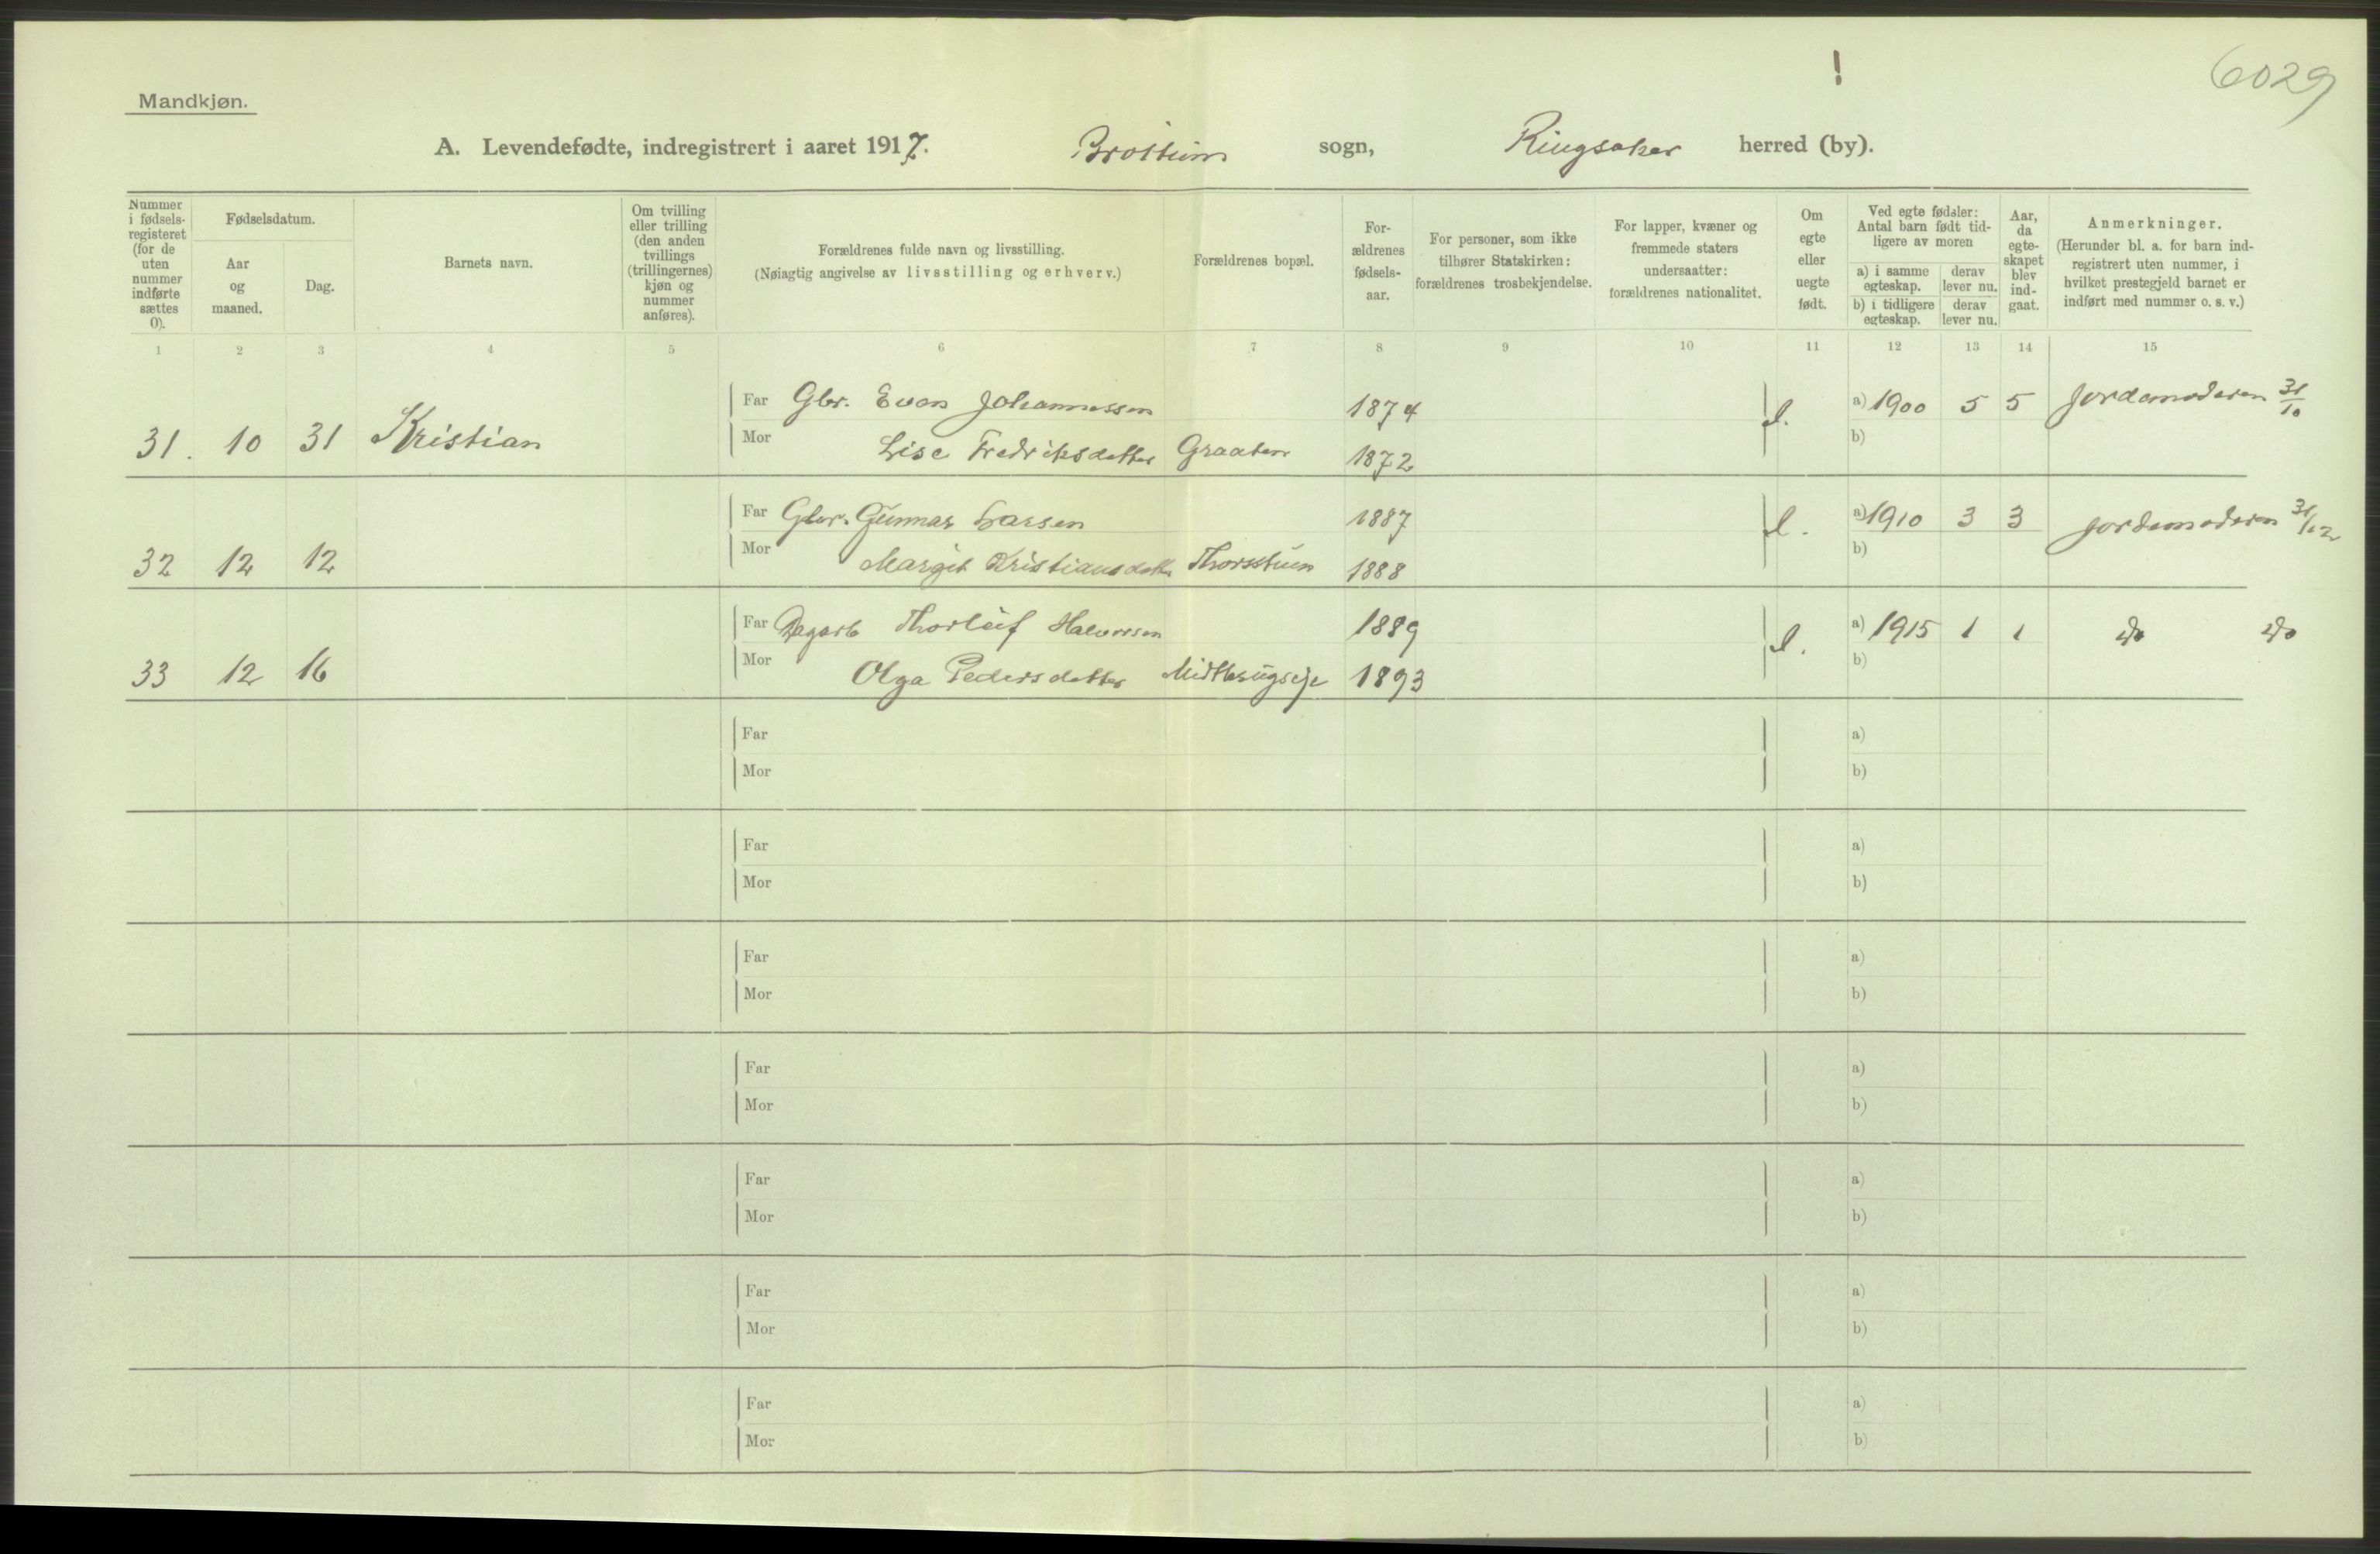 !
6029
Mandkjøn.
A. Levendefødte, indregistrert i aaret 1917. Brøttum sogn, Ringsaker herred (by).
Nummer i fødsels-registeret (for de uten nummer indførte sættes 0).
Fødselsdatum.
Aar og maaned.
Dag.
Barnets navn.
Om tvilling eller trilling (den anden tvillings (trillingernes) kjøn og nummer anføres).
Forældrenes fulde navn og livsstilling.
(Nøiagtig angivelse av livsstilling og erhverv.)
Forældrenes bopæl.
For-ældrenes fødsels-aar.
For personer, som ikke tilhører Statskirken: forældrenes trosbekjendelse.
For lapper, kvæner og fremmede staters undersaatter: forældrenes nationalitet.
Om egte eller uegte født.
Ved egte fødsler: Antal barn født tid-ligere av moren
a) i samme egteskap.
derav lever nu.
b) i tidligere egteskap.
derav lever nu.
Aar, da egte-skapet blev ind-gaat.
Anmerkninger.
(Herunder bl. a. for barn ind-registrert uten nummer, i hvilket prestegjeld barnet er indført med nummer o. s. v.)
1 2 3 4 5 6 7 8 9 10 11 12 13 14 15
Far Gbr. Even Johannessen 1874 a) 1900 5 5 Jordemoderen 31/10
31. 10 31 Kristian Mor Lise Fredriksdatter 1872 b)
Far Gbr. Gunnar Larsen 1887 a) 1910 3 3 Jordemoderen 31/12
32 12 12 Mor Margit Kristiansdatter Thorsstuen 1888 b)
Far Dagarb Thorleif Halvorsen 1889 a) 1915 1 1 Do Do
33 12 16 Mor Olga Pedersdatter 1893 b)
Far a)
Mor b)
Far a)
Mor b)
Far a)
Mor b)
Far a)
Mor b)
Far a)
Mor b)
Far a)
Mor b)
Far a)
Mor b)